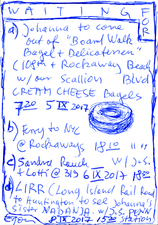 WAITING FOR
a) Johanna to come
out of "Board Walk
Bagel + Delicatessen"
(108st + Rockaway Beach
w/ our Scallion Blvd
CREAM CHEESE Bagels
7 20 5 IX 2017
b) Ferry to NYC
@ Rockaways 18 10
c) Sandra Rauch w/ J.S.
+ Lott @ 319 6 IX 2017 18 00
d) LIRR (Long Island Rail Road
to Huntington to see Johanna's
sister NADANJA w/J.S. PENN
8 IX 2017 Station)